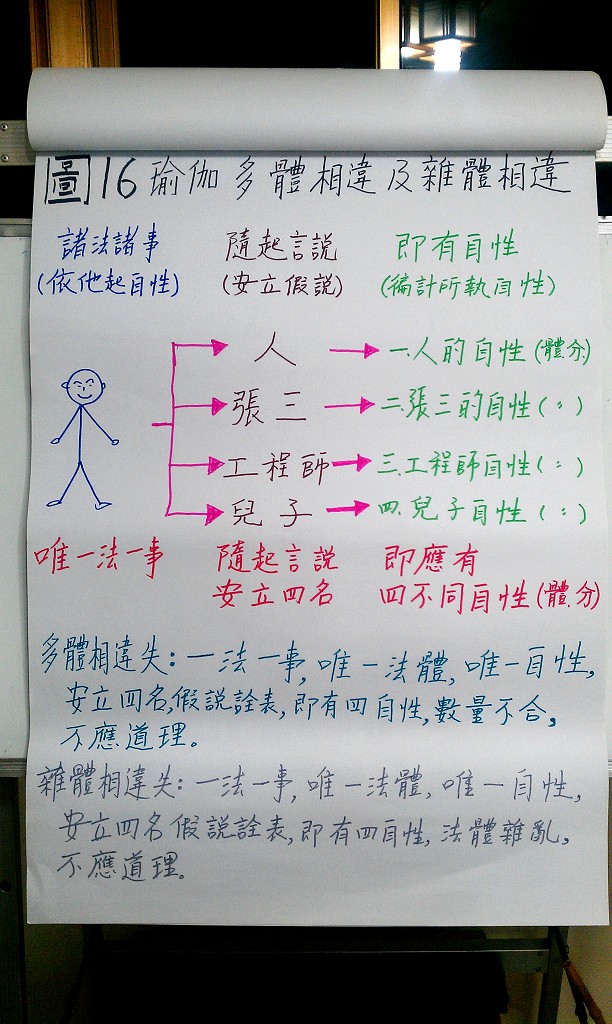 圖16 瑜伽多體相違及雜體相違
諸法諸事 隨起言說 即有自性
(依他起自性) (安立假說) (徧計所執自性)
人 一.人的自性(體.分)
張三 二.張三的自性(〃)
工程師 三.工程師自性(〃)
兒子 四.兒子自性(〃)
唯一法一事 隨起言說 即應有
安立四名 四不同自性(體.分)
多體相違失:一法一事,唯一法體,唯一自性,
安立四名,假說詮表,即有四自性,數量不合,
不應道理。
雜體相違失:一法一事,唯一法體,唯一自性,
安立四名假說詮表,即有四自性,法體雜亂,
不應道理。